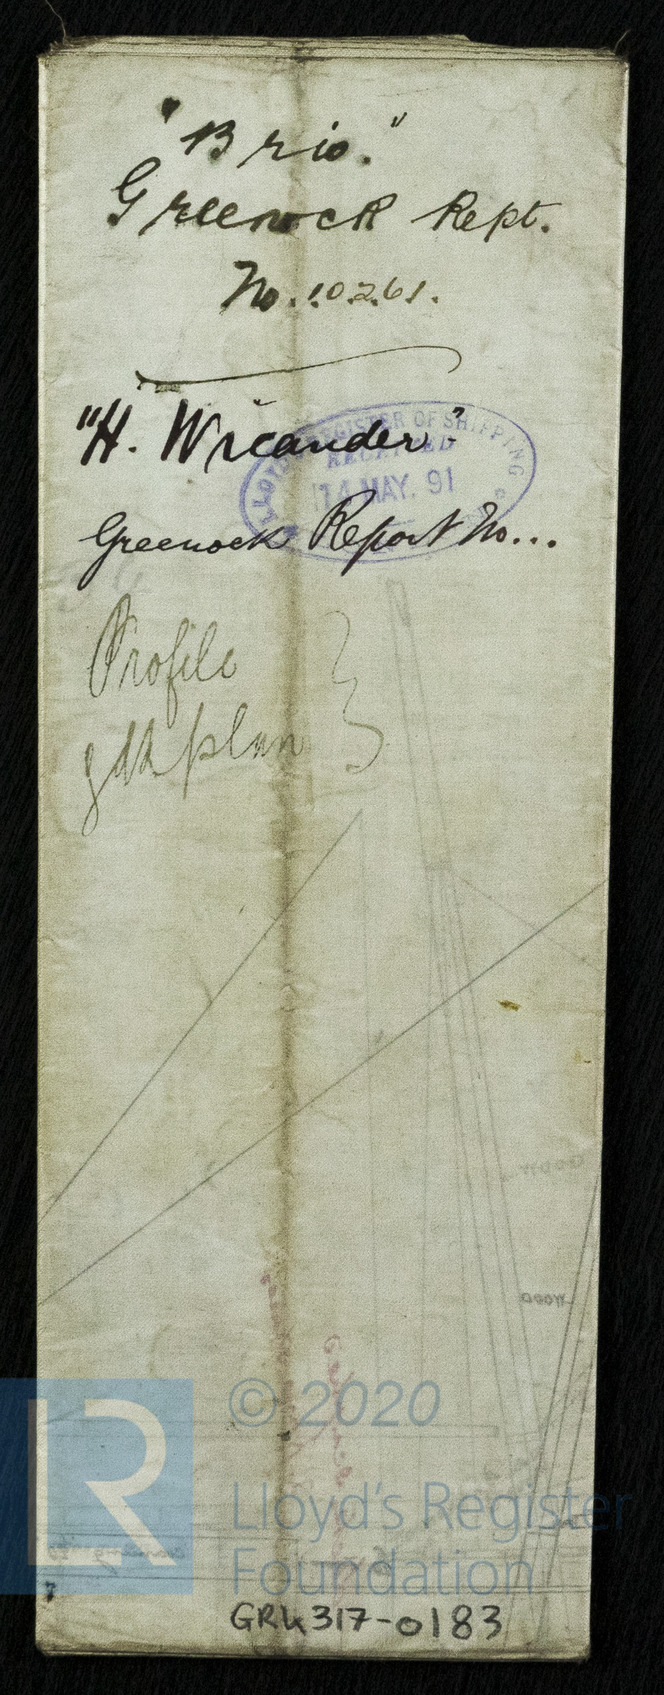 "Brio."
Greenock Rept.
No. 10261.
"H. Wicander"
LLOYD'S REGISTER OF SHIPPING
RECEIVED
14 MAY. 91
Greenock Report No...
Profile
plan
WOOD
WOOD
© 2020
LR
Lloyd's Register
Foundation
GRK317-0183